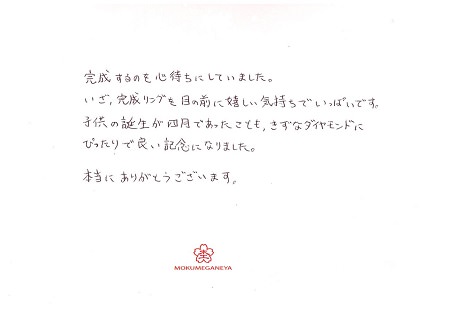 完成するのを心待ちにしていました。
いざ、完成リングを目の前に嬉しい気持ちでいっぱいです。
子供の誕生が四月であったことも、きずなダイヤモンドに
ぴったりで良い記念になりました。
本当にありがとうございます。
MOKUMEGANEYA